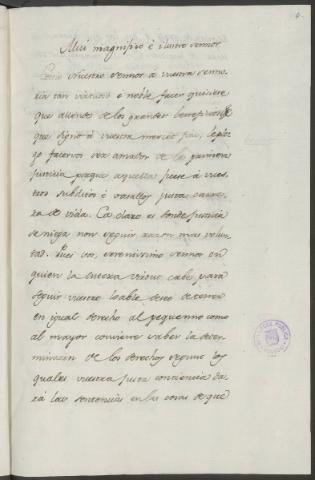 4.
Mui magnifico é ilustre sennor
Nuestro sennor a vuestra senno-
ria tan virtuoso e noble facer quisiere
que allende de los grandes beneficios
que dignó a vuestra merced fas, le plo-
go faceros ser amador de la
justicia porque aquella fuese á vues-
tros subditos é vasallos justa carre-
ra de vida. Ca claro es donde justicia
se niega non seguir razon mas volun-
tad. Pues con, serenissimo sennor en
quien la entera virtut cabe para
seguir vuestro loable deseo de tener
en igual derecho al pequenno como
al mayor conviene saber la deter-
minacion de los derechos segunt los
quales vuestra justa conciencia da-
rá las sentencias en las cosas de que